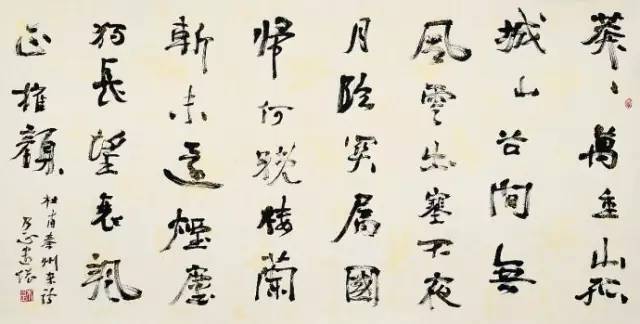 莽〻萬重山孤
城山谷間無
風雲出塞不夜
月臨關屬國
歸何晚樓蘭
斬未還煙塵
獨長望衰颯
正摧顏
杜甫秦州杂詩